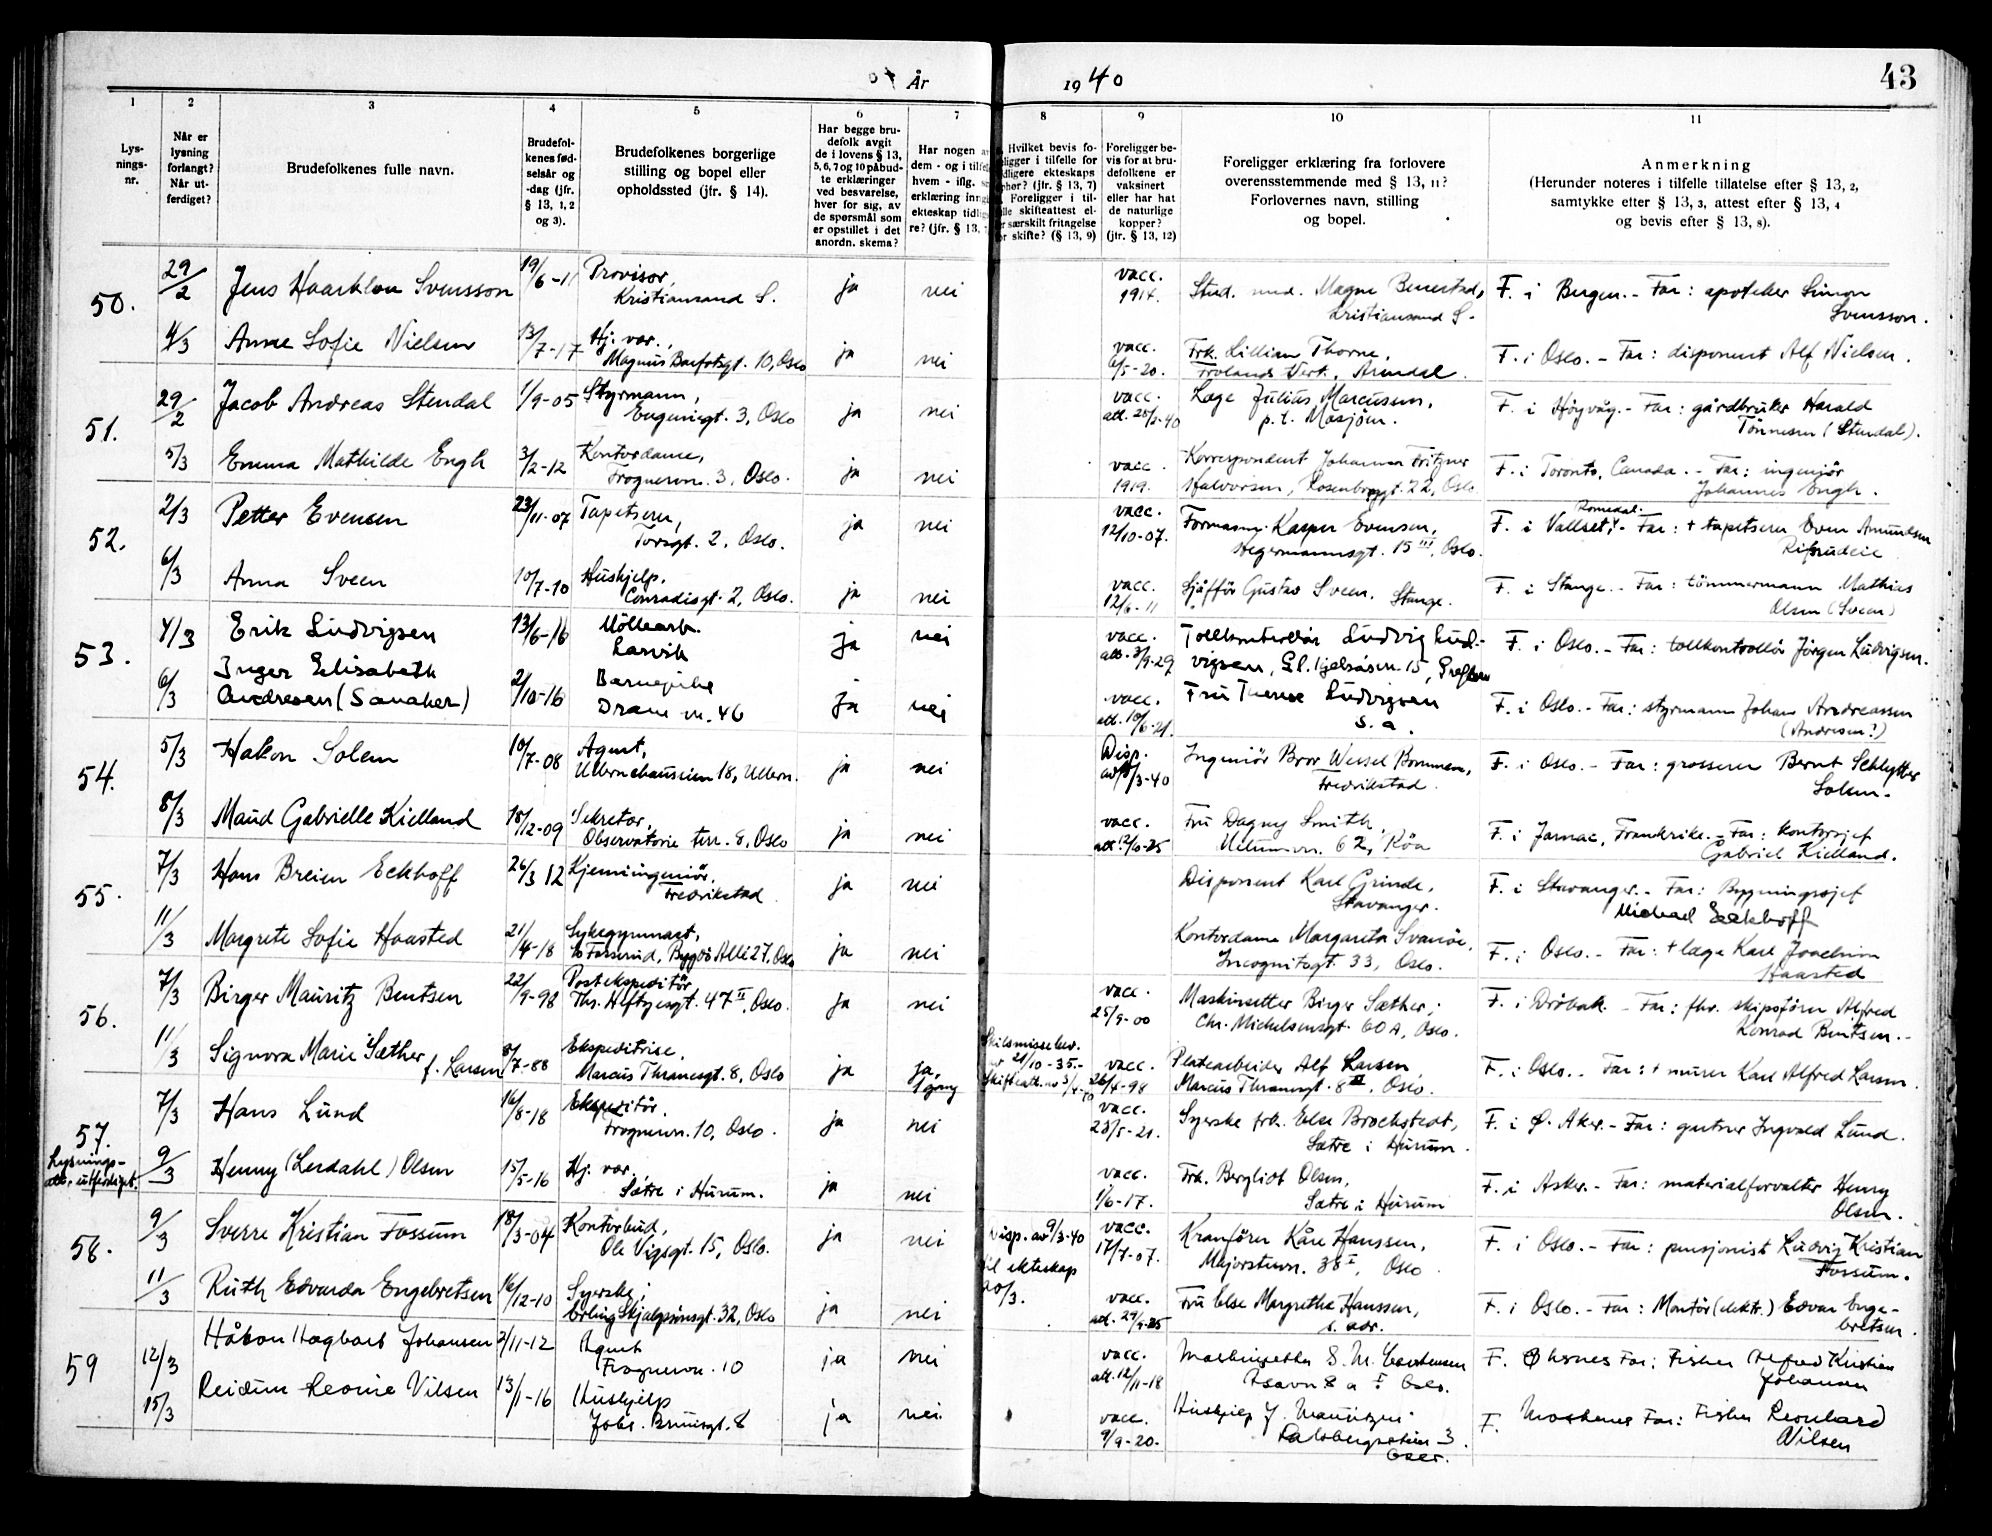 År
1940
43
1
2
3
4
5
6
7
8
9
10
11
Lys-
nings-
nr.
Når er
lysning
forlangt?
Når ut-
ferdiget?
Brudefolkenes fulle navn.
Brudefol-
kenes fød-
selsår og
-dag (jfr.
§ 13, 1, 2
og 3).
Brudefolkenes borgerlige
stilling og bopel eller
opholdssted (jfr. § 14).
Har begge bru-
defolk avgit
de i lovens § 13,
5, 6, 7 og 10 påbud-
te erklæringer
ved besvarelse,
hver for sig, av
de spørsmål som
er opstillet i det
anordn. skema?
Har nogen
dem - og i
hvem - iflg.
erklæring
ekteskap
re? (jfr. § 13,
Hvilket bevis fo-
ligger i tilfelle for
ligere ekteskaps
(jfr. § 13, 7)
Foreligger i til-
skifteattest el-
særskilt fritagelse
skifte? (§ 13, 9)
Foreligger be-
vis for at bru-
defolkene er
vaksinert
eller har hat
de naturlige
kopper?
(jfr. § 13, 12)
Foreligger erklæring fra forlovere
overensstemmende med § 13, 11?
Forlovernes navn, stilling
og bopel.
Anmerkning
(Herunder noteres i tilfelle tillatelse efter § 13, 2,
samtykke efter § 13, 3, attest efter § 13, 4
og bevis efter § 13, 8).
50. 29/2 Jens Haarklou Svensson 19/6-11 Provisor, ja nei vacc. Stud. med. Magne
Kristiansand S. 1914. Kristiansand S.
F. i Bergen. - Far: apoteker Simon
Svensson.
4/3 Anne Sofie Nielsen 13/7-17 Hj. vær., ja nei vacc. Frk. Lillian Thorne,
Magnus Barfotsgt. 10, Oslo 6/5-20. Frolands Verk, Arendal.
F. i Oslo. - Far: disponent Alf Nielsen.
51. 29/2 Jacob Andreas Stendal 1/9-05 Styrmann, ja nei vacc. Læge Julius Marcussen,
Eugeniesgt. 3, Oslo p. t. Mosjöen.
F. i Høgvåg. - Far: gårdbruker Harald
Tönnesen (Stendal).
5/3 Emma Mathilde Engh 3/2-12 Kontordame, ja nei vacc. Korrespondent Johannes Fritzner
Frognervn. 3, Oslo. 1919. Halvorsen, Rosenborggt. 22, Oslo
F. i Toronto, Canada. - Far: ingeniör
Johannes Engh.
52. 2/3 Petter Evensen 23/11-07 Tapetserer, ja nei vacc. Formann Kasper Evensen,
Torsgt. 2, Oslo. 12/10-07. Hegermannsgt. 15 III, Oslo.
Romedal.
F. i Vallset, - Far: + tapetserer Even Amundsen
6/3 Anna Sveen 10/7-10 Hushjelp, ja nei vacc. Sjåför Gustav Sveen, Stange.
Conradisgt. 2, Oslo. 12/6-11
F. i Stange. - Far: tömmermann Mathias
Olsen (Sveen)
53. 4/3 Erik Ludvigsen 13/6-16 Möllearb. ja nei vacc. Tollkontrollør Ludvig Lud-
Larvik att. 3/9-29 vigsen, Gl. Kjelsåsvn. 15, Grefsen
F. i Oslo. - Far: tollkontrollör Jörgen Ludvigsen.
6/3 Inger Elisabeth
Andresen (Sanaker) 2/10-16 Barnepike ja nei vacc. Fru Therese Ludvigsen
Drammensvn. 46 s. a.
F. i Oslo. - Far: styrmann Johan Andreassen
(Andresen!)
54. 5/3 Håkon Solem 10/7-08 Agent, ja nei Disp. Ingeniör Bror Wessel Bommen,
Ullernchausseen 18, Ullern. Fredrikstad.
F. i Oslo. - Far: grosserer Bernt Schlytter
Solem.
8/3 Maud Gabrielle Kielland 18/12-09 Sekretær, ja nei vacc. Fru Dagny Smith,
Observatorie terr. 8, Oslo 62, Röa
F. i Jarnac, Frankrike. - Far: kontorsjef
Gabriel Kielland.
55. 7/3 Hans Breien Eckhoff 26/3 12 Kjemiingeniör, ja nei Disponent Karl Grinde,
Fredrikstad Stavanger.
F. i Stavanger. - Far: Bygningssjef
Michael Eckhoff
11/3 Margrete Sofie Haasted 21/4-18 Sykegymnast, ja nei Kontordame Margareta Svanöe,
Bygdö Allé 27, Oslo Incognitogt. 33, Oslo.
F. i Oslo. - Far: + læge Karl Joachim
Haasted
56. 7/3 Birger Mauritz Bentsen 22/9-98 Postekspeditör, ja nei vacc. Maskinsetter Birger Sæther,
Ths. Heftyesgt. 47 II, Oslo. 25/9-00 Chr. Michelsensgt. 60 A, Oslo.
F. i Dröbak. - Far: fhv. skipsförer Alfred
Konrad Bentsen.
11/3 Signora Marie Sæther f. Larsen 8/7-88 Ekspeditrise, ja ja, 1 gang Skilsmissebev. av 21/10-35. - vacc. Platearbeider Alf Larsen,
Marcus Thranesgt. 8, Oslo 26/4-98 Marcus Thranesgt. 8 III, Oslo.
F. i Oslo. - Far: + murer Karl Alfred Larsen.
57. 7/3 Hans Lund 16/8-18 Ekspeditör, ja nei vacc. Syerske frk. Else Brochstedt,
Frognervn. 10, Oslo. 23/5-21. Sætre i Hurum.
F. i Ø. Aker. - Far: gartner Ingvald Lund.
Lysnings-
att. utferdiget.
9/3 Henny (Lerdahl) Olsen 15/5-16 Hj. vær. ja nei vacc. Frk. Bergliot Olsen,
Sætre i Hurum. 1/6-17. Sætre i Hurum
F. i Asker. - Far: materialforvalter Henry
Olsen.
58. 9/3 Sverre Kristian Fossum 18/3-04 Kontorbud, ja nei Disp. av 9/3-40 vacc. Kranförer Kåre Hanssen,
Ole Vigsgt. 15, Oslo. til ekteskap 17/7-07. Majorstuvn. 38 I, Oslo
20/3.
F. i Oslo. - Far: pensjonist Ludvig Kristian
Fossum.
11/3 Ruth Edvarda Engebretsen 16/12-10 Syerske, ja nei vacc. Fru Else Margrethe Hanssen,
Erling Skjalgsonsgt. 32, Oslo s. adr.
F. i Oslo. - Far: Montör (elektr.) Edvar Enge-
bretsen.
59 12/3 Håkon Hagbart Johansen 2/11-12 Agent ja nei vacc.
Frognervn. 10 att. 12/11-18
Far: Fisker Alfred Kristian
Johansen
15/3 Reidun Leonie Nilsen 13/1-16 Hushjelp ja nei vacc. Hushjelp J.
Johs. Bruunsgt. 8 9/9-20. 3
Oslo.
F. Moskenes Far: Fisker Leonhard
Nilsen